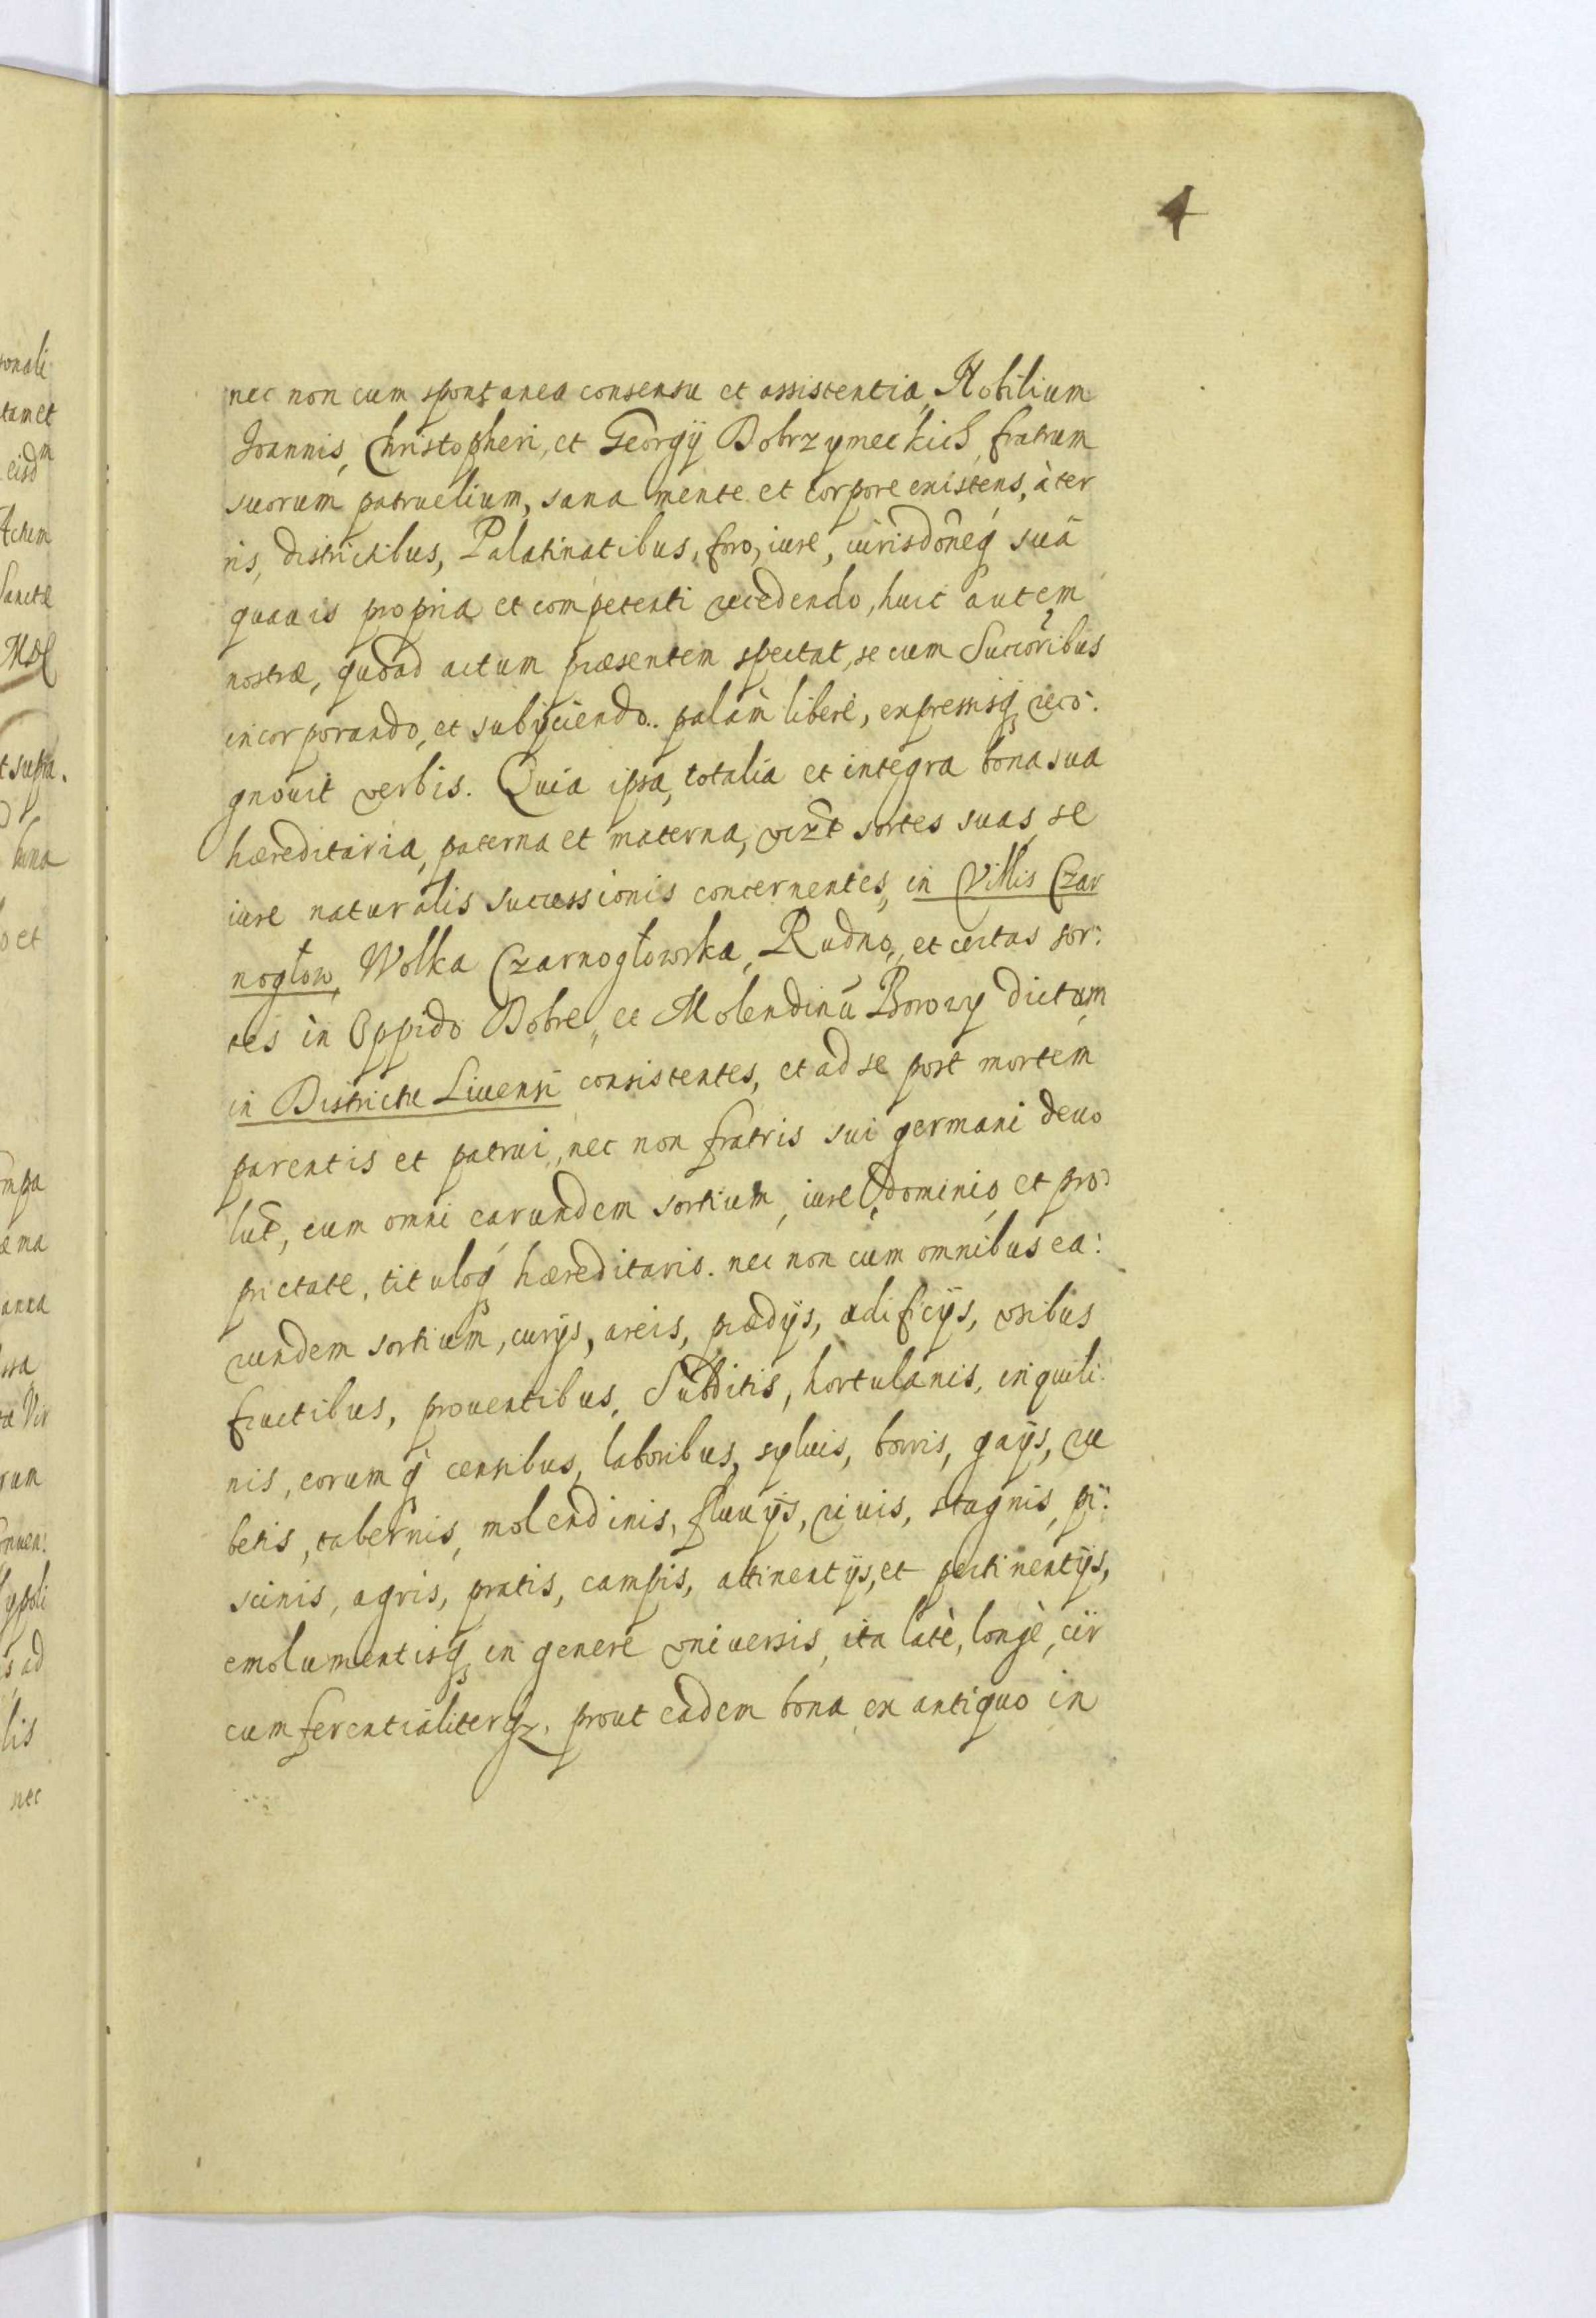 4
nec non cum spontanea consensu et assistentia, Nobilium
Joannis, Christopheri, et Georgÿ Dobrzynieckich, fratrum
suorum patruelium, sana mente et corpore existens, à ter
ris, districtibus, Palatinatibus, foro, iure, iurisdõneq́ suâ
quauis propria et competenti recedendo, huic autem
nostræ, quoad actum præsentem spectat, se cum Succoribus
incorporando, et subÿciendo. palàm liberè, expressisq́ reco:
gnouit verbis. Quia ipsa, totalia et integra bona sua
hæreditaria, paterna et materna, vizt sortes suas, se
iure naturalis successionis concernentes, in Villis Czar
nogłow, Wolka Czarnogłowska, Rudno, et certas sor:
tes in Oppido Dobre, et Molendinū Borowy dictum
in Districtu Liuensi consistentes, et ad se post mortem
parentis et patrui, nec non fratris sui germani deuo
lut, cum omni earundem sortium, iure, dominio, et pro:
prietate, tituloq́ hæreditario. nec non cum omnibus ea:
rundem sortium, curÿs, areis, prædÿs, ædificÿs, vsibus
fructibus, prouentibus, Subditis, hortulanis, inquili:
nis, eorumq́ censibus, laboribus, syluis, borris, gaÿs, ru
betis, tabernis, molendinis, fluuÿs, riuis, stagnis, pi:
scinis, agris, pratis, campis, attinentÿs, et pertinentÿs,
emolumentisq́ in genere vniuersis, ita latè, longè, cir
cumferentialiterqz, prout eadem bona ex antiquo in